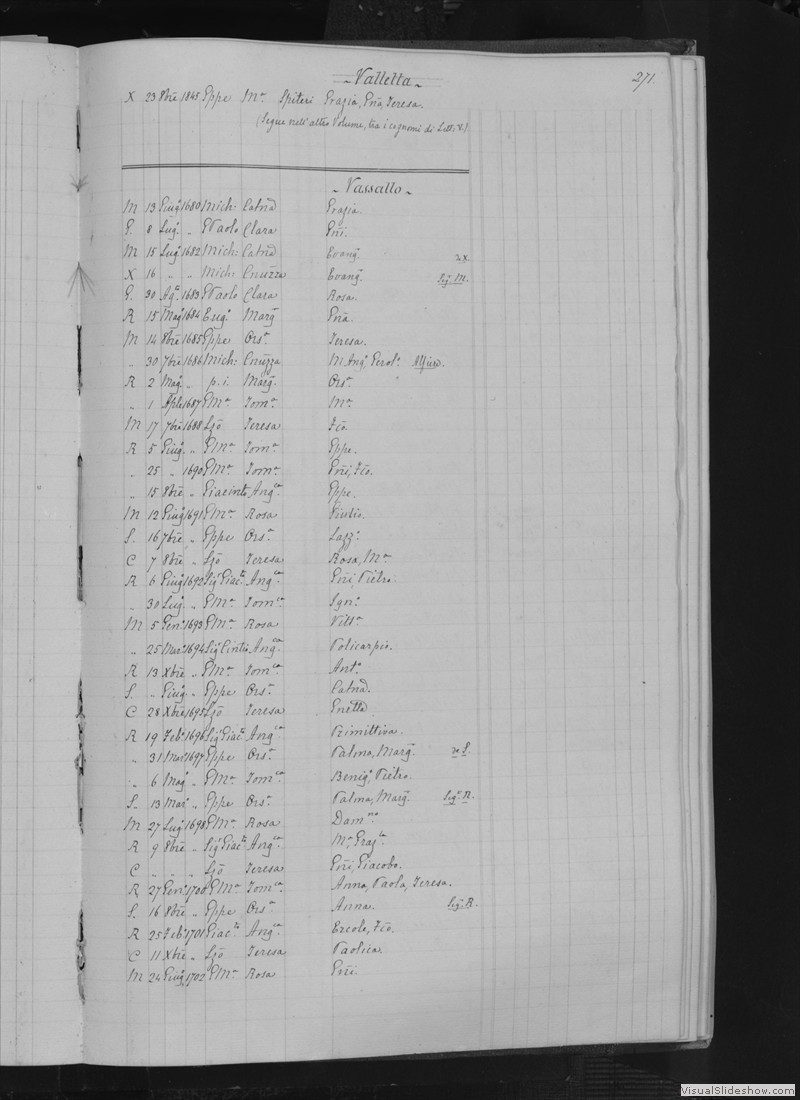 271.
- Valletta -
X 23 8bre 1845 Gppe Ma Spiteri Grazia, Gña, Teresa.
(Segue nell'altro Volume, tra i cognomi di Lett. V.)
- Vassallo -
M 13 Giugo 1680 Mich: Catnā Grazia.
G. 8 Lugo " GPaolo Clara Gñi.
M 15 Lugo 1682 Mich: Catnā Evango
X 16 " " Mich: Cnuzza Evango Sigr M.
G. 30 Ago 1683 GPaolo Clara Rosa.
R 15 Mago 1684 Margā Gña.
M 14 8bre 1685 Gppe Orsa Teresa.
" 30 7bre 1686 Mich: Cnuzza M. Ango
R 2 Mago " p.i. Margā Orsa
" 1 Aple 1687 GMa Toma Ma
M 17 7bre 1688 Lzō Teresa Fcō
R 5 Giugo " GMa Toma Gppe.
" 25 " 1690 GMa Toma Gñi, Fcō.
" 15 8bre " Giacinto Angca Gppe.
M 12 Giugo 1691 GMa Rosa
S. 16 7bre " Gppe Orsa Lazzo
C 7 8bre " Lzō Teresa Rosa, Ma
R 6 Giugo 1692 Sigr Giacto Angca Gñi, Pietro
" 30 Lugo " GMa Tomca Igno
M 5 Geno 1693 GMa Rosa Vitta
" 25 Maro 1694 Sigr Cinto Angca Policarpio.
R 13 Xbre " GMa Tomca Anto
S. " Giugo " Gppe Orsa Catnā.
C 28 Xbre 1695 Lzō Teresa Gnetta
R 19 Febo 1696 Sigr Giacto Angca Primittiva.
" 31 Maro 1697 Gppe Orsa Palma, Margā. in S.
" 6 Mago " GMa Tomca Benigo Pietro.
S. 13 Maro " Gppe Orsa Palma, Margā. Sigr R.
M 27 Lugo 1698 GMa Rosa Damno
R 9 8bre " Sigr Giacto Angca Ma Grazia
C " " " Lzō Teresa Gñi, Giacobo.
R 27 Geno 1700 GMa Tomca Anna, Paola, Teresa.
S. 16 8bre " Gppe Orsa Anna. Sigr R.
R 25 Febo 1701 Giacto Angca Ercole, Fcō.
C 11 Xbre " Lzō Teresa Paolica
M 24 Giugo 1702 GMa Rosa Gñi.
VisualSlideshow.com